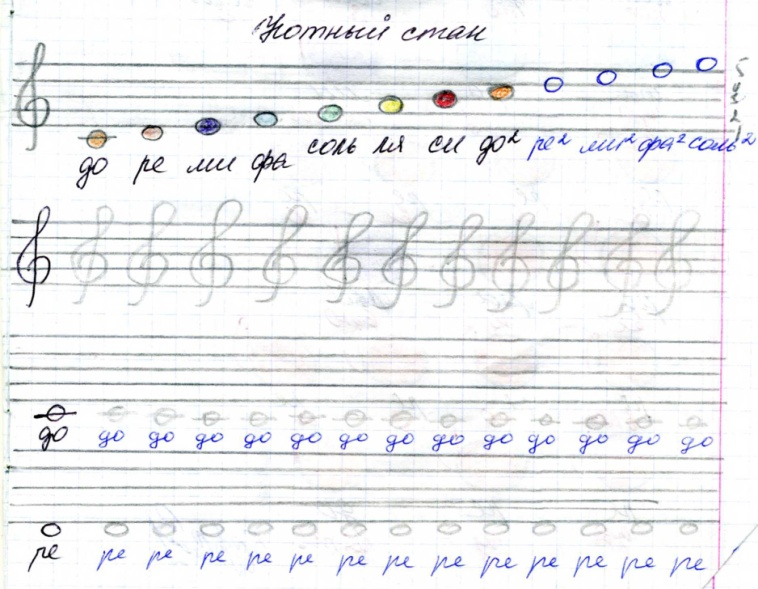 Нотный стан
5
4
3
2
1
до ре ми фа соль ля си до² ре² ми² фа² соль²
до до до до до до до до до до до до до до
ре ре ре ре ре ре ре ре ре ре ре ре ре ре